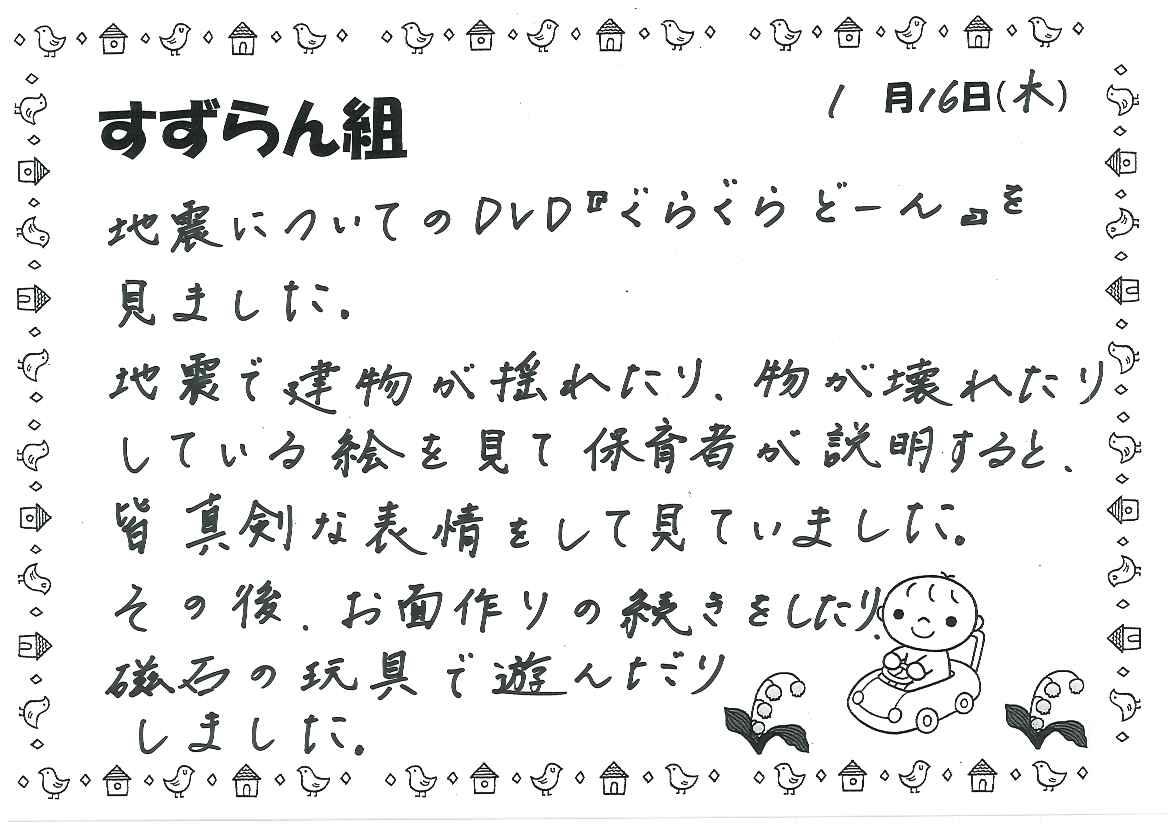 1月16日(木)
すずらん組
地震についてのDVD『ぐらぐらどーん』を
見ました。
地震で建物が揺れたり、物が壊れたり
している絵を見て保育者が説明すると、
皆真剣な表情をして見ていました。
その後、お面作りの続きをしたり、
磁石の玩具で遊んだり
しました。